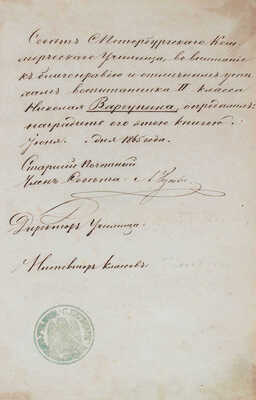 Советъ С. Петербургскаго Ком-
мерческаго Училища, во вниманіе
къ благонравію и отличнымъ успѣ-
хамъ воспитанника II класса
Николая Варгунина, опредѣлилъ:
наградить его этою книгою.
Іюня дня 1865 года.
Старшій Почетный
Членъ Совѣта
Директоръ Училища
Инспекторъ Классовъ